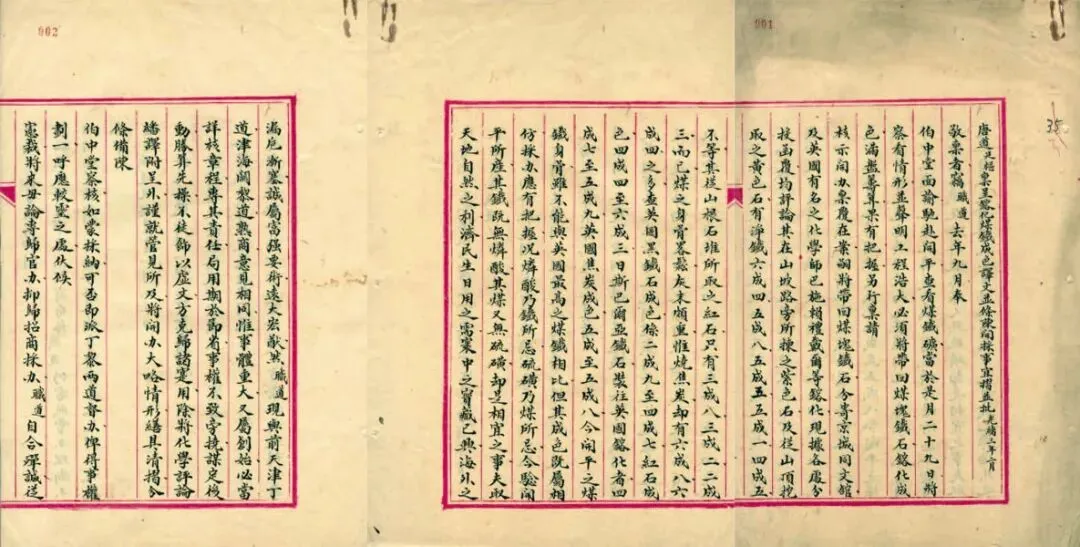 001
35
唐道廷樞稟呈鎔化煤鐵成色譯文並條陳開採事宜摺並批光緒三年八月
敬稟者竊職道去年九月奉
伯中堂面諭馳赴開平查看煤鐵礦當於是月二十九日將
察看情形並聲明工程浩大必須將帶回煤塊鐵石鎔化成
色滿盤籌算果有把握另行稟請
核示開办稟覆在案嗣將帶回煤塊鐵石分寄京城同文館
及英國有名之化學師巴施賴禮戴爾等鎔化現據各處分
投函覆均評論其在山坡路旁所揀之紫色石及從山頂挖
取之黃色石有淨鐵六成四五成八五成五五成一四成五
不等其從山根石堆所取之紅石只有三成八三成二二成
三而已煤之身骨畧鬆灰末頗重惟燒焦炭却有六成八六
成四之多查英國黑鐵石成色係二成九至四成七紅石成
色四成四至六成三日斯巴爾亞鐵石裝往英國鎔化者四
成七至五成九英國焦炭成色五成至五成八今開平之煤
鐵身骨雖不能與英國最高之煤鐵相比但其成色既屬相
仿採办應有把握况燐酸乃鐵所忌硫磺乃煤所忌今驗開
平所產其鐵既無燐酸其煤又無硫磺却是相宜之事夫取
天地自然之利濟民生日用之需寰中之寶藏已興海外之
002
漏巵漸塞誠屬富强要術遠大宏猷然職道現與前天津丁
道津海關黎道熟商意見相同惟事體重大又屬創始必當
詳核章程專其責任局用期於節省事權不致旁撓謀定後
動勝算先操不徒飾以虛文方克歸諸寔用除將化學評論
繙譯附呈外謹就管見所及將開办大略情形繕具清摺分
條備陳
伯中堂察核如蒙採納可否即派丁黎兩道督办俾得事權
劃一呼應較靈之處伏候
憲裁將來毋論專歸官办抑歸招商採办職道自合殫誠從